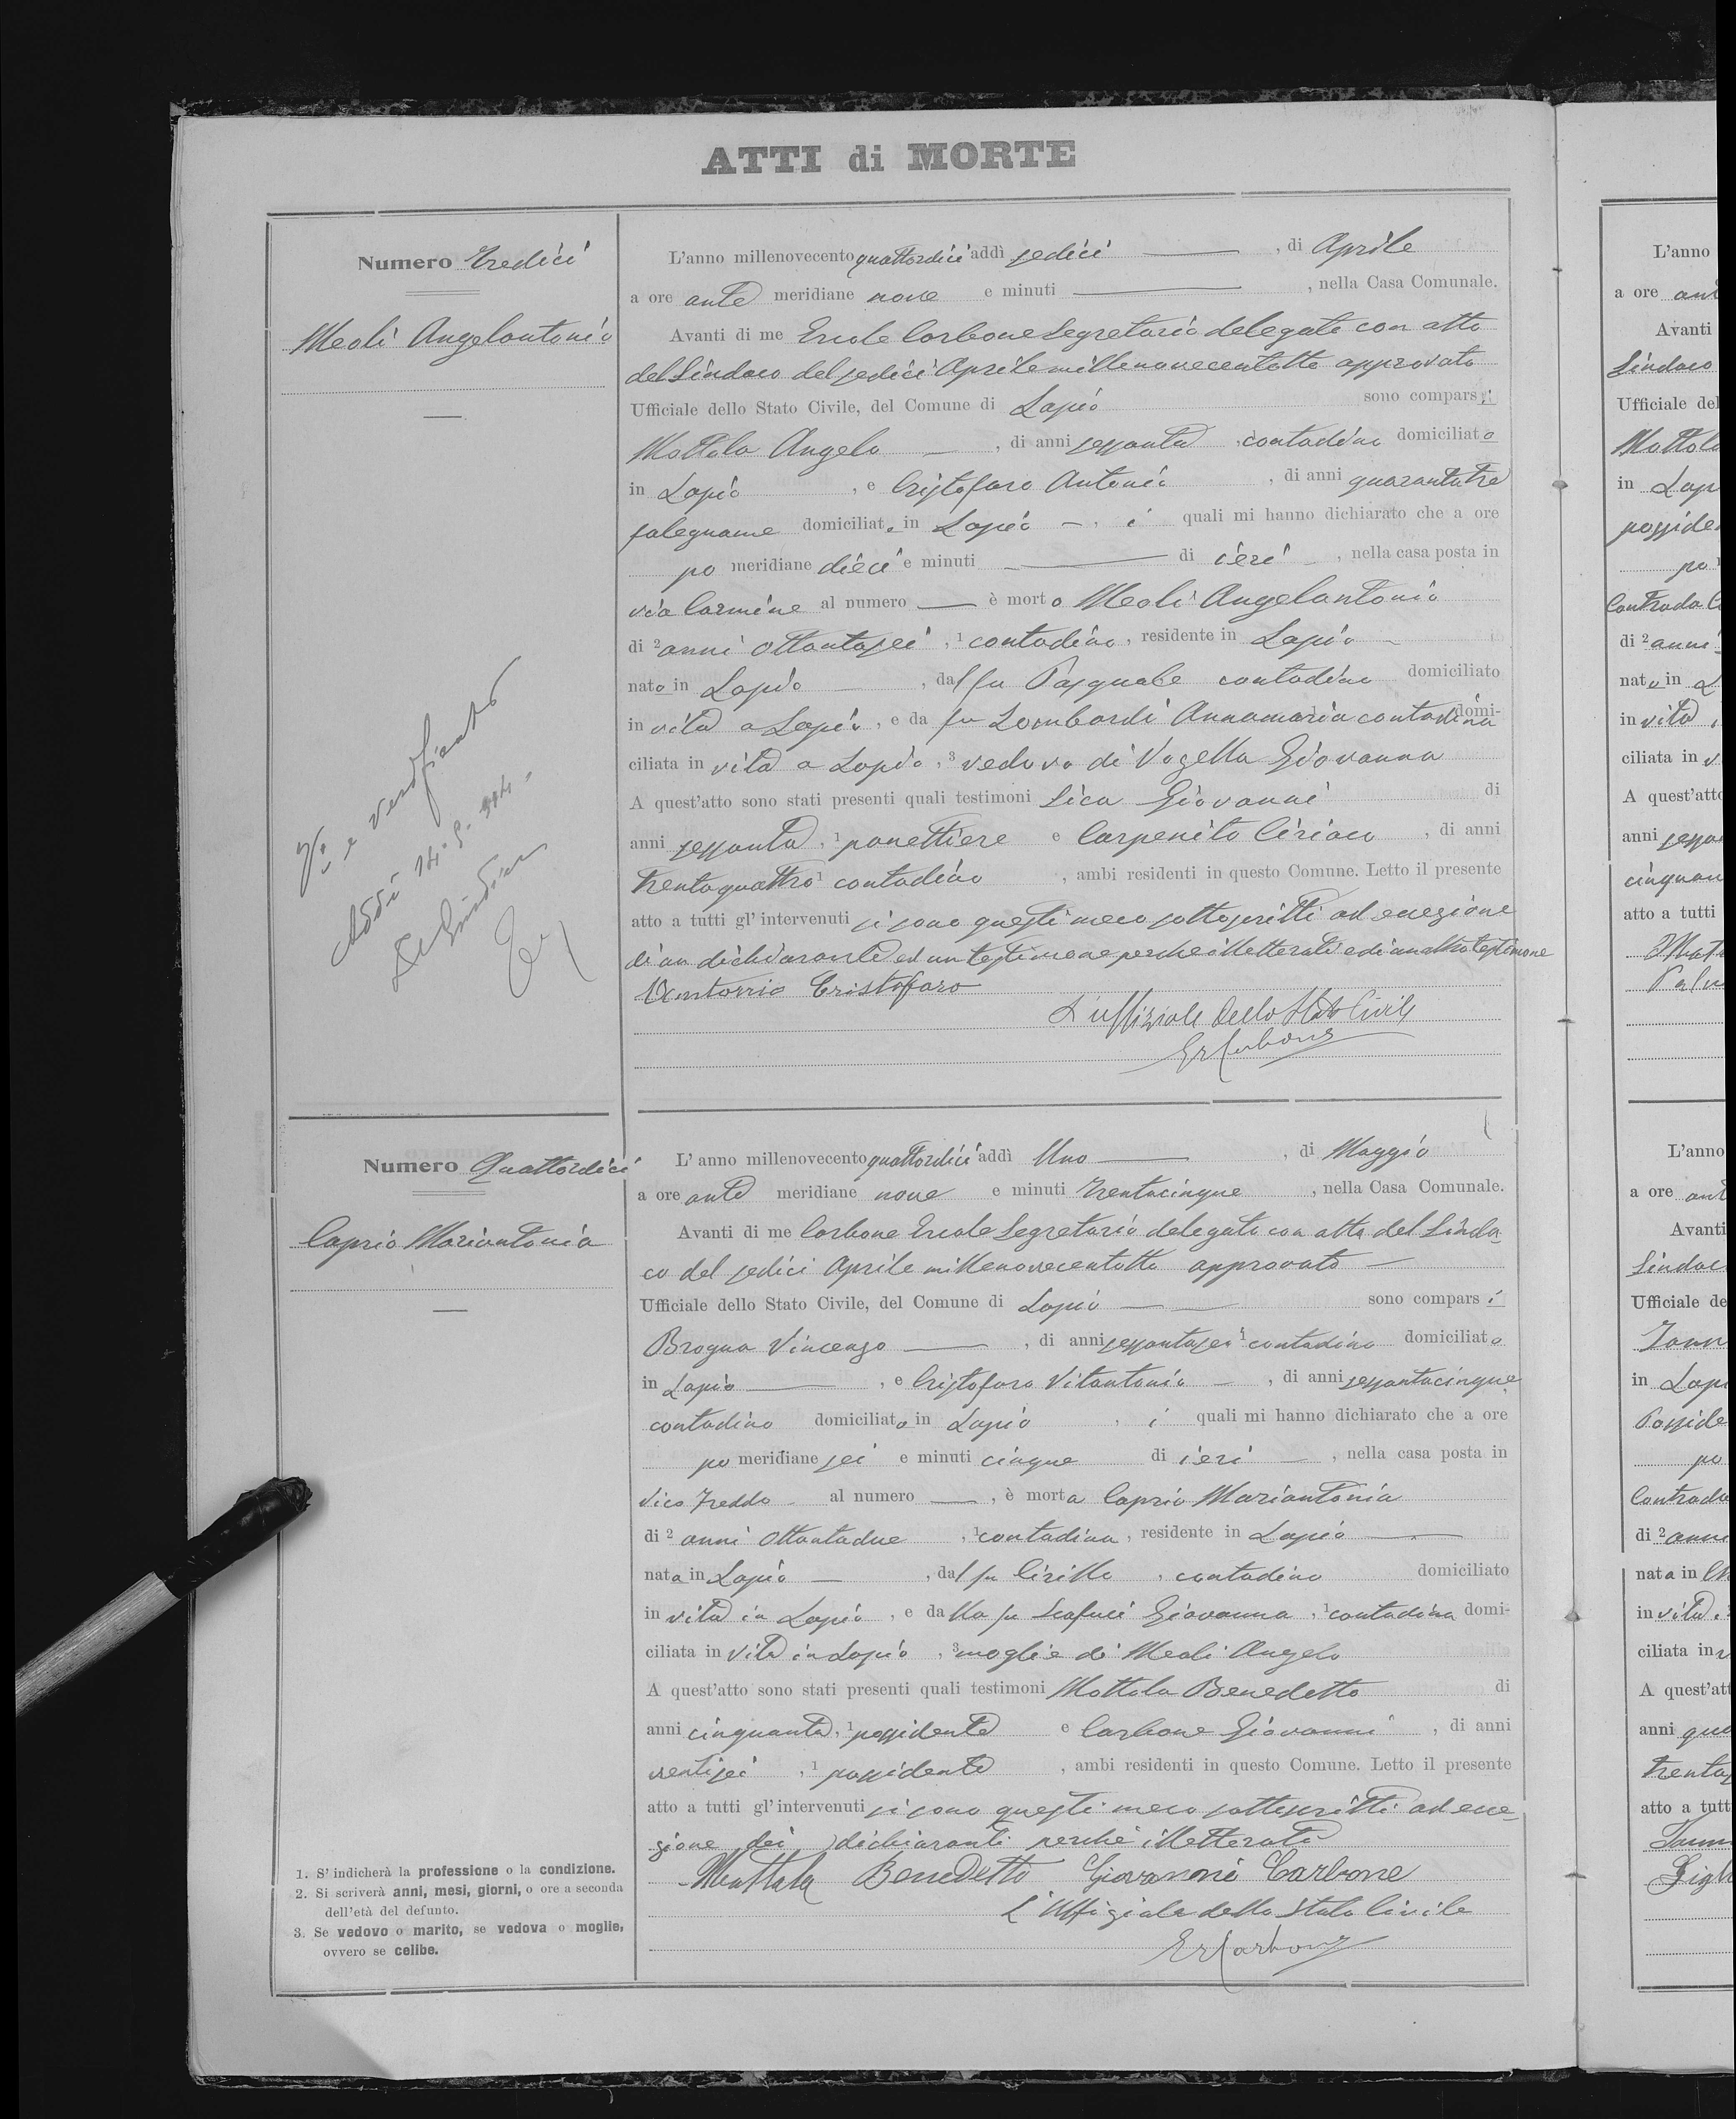 ATTI di MORTE
Numero Tredici
Meoli Angelantonio
L'anno millenovecento quattordici addì sedici, di Aprile
a ore ante meridiane nove e minuti, nella Casa Comunale.
Avanti di me Ercole Carbone Segretario delegato con atto
del Sindaco del sedici Aprile millenovecentotto approvato
Ufficiale dello Stato Civile, del Comune di Lapio sono comparsi
Mottola Angelo, di anni sessanta, contadino domiciliato
in Lapio, e Cristofaro Antonio, di anni quarantatre
falegname domiciliato in Lapio, i quali mi hanno dichiarato che a ore
po meridiane dieci e minuti di ieri, nella casa posta in
via Carmine al numero è morto Meoli Angelantonio
di 2 anni ottantasei, 1 contadino, residente in Lapio
nato in Lapio, dal fu Pasquale contadino domiciliato
in vita a Lapio, e da fu Lombardi Annamaria contadina domi-
ciliata in vita a Lapio, 3 vedovo di Vozella Giovanna
A quest'atto sono stati presenti quali testimoni Sica Giovanni di
anni sessanta, 1 panettiere e Carpenito Ciriaco, di anni
trentaquattro 1 contadino, ambi residenti in questo Comune. Letto il presente
atto a tutti gl'intervenuti si sono questi meco sottoscritti ad eccezione
di un dichiarante ed un testimone perche illetterati e di un altro testimone
Antonio Cristofaro
L'uffiziale dello Stato Civile
ErCarbone
V. e verificato
Addì 14. 5. 914.
Il Sindaco
Numero Quattordici
Caprio Mariantonia
L'anno millenovecento quattordici addì Uno, di Maggio
a ore ante meridiane nove e minuti trentacinque, nella Casa Comunale.
Avanti di me Carbone Ercole Segretario delegato con atto del Sinda-
co del sedici Aprile millenovecentotto approvato
Ufficiale dello Stato Civile, del Comune di Lapio sono comparsi
Brogna Vincenzo, di anni sessantasei 1 contadino domiciliato
in Lapio, e Cristofaro Vitantonio, di anni sessantacinque
contadino domiciliato in Lapio, i quali mi hanno dichiarato che a ore
po meridiane sei e minuti cinque di ieri, nella casa posta in
Vico Freddo al numero, è morta Caprio Mariantonia
di 2 anni ottantadue, 1 contadina, residente in Lapio
nata in Lapio, dal fu Cirillo, contadino domiciliato
in vita in Lapio, e dalla fu Scafuci Giovanna, 1 contadina domi-
ciliata in vita in Lapio, 3 moglie di Meoli Angelo
A quest'atto sono stati presenti quali testimoni Mottola Benedetto di
anni cinquanta, 1 possidente e Carbone Giovanni, di anni
ventisei, 1 possidente, ambi residenti in questo Comune. Letto il presente
atto a tutti gl'intervenuti si sono questi meco sottoscritti ad ecce-
zione dei dichiaranti perchè illetterati
Mottola Benedetto Giovanni Carbone
L'Uffiziale dello Stato Civile
ErCarbone
1. S'indicherà la professione o la condizione.
2. Si scriverà anni, mesi, giorni, o ore a seconda
dell'età del defunto.
3. Se vedovo o marito, se vedova o moglie,
ovvero se celibe.